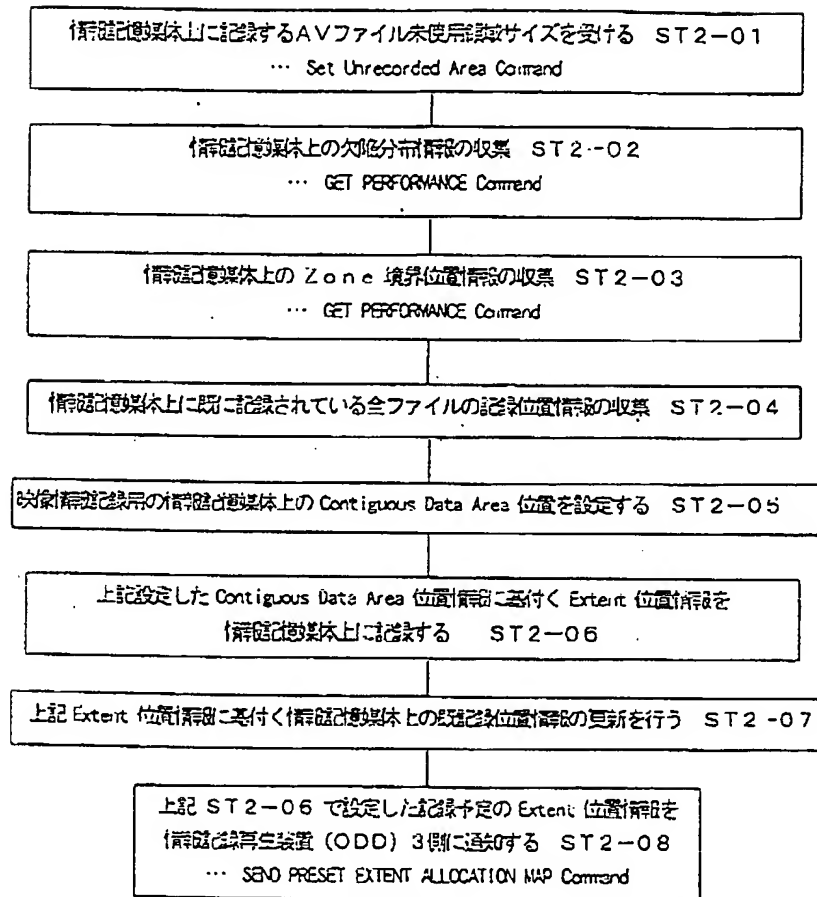 情報記憶媒体上に記録するAVファイル未使用領域サイズを受ける ST2-01
… Set Unrecorded Area Command
情報記憶媒体上の欠陥分布情報の収集 ST2-02
… GET PERFORMANCE Command
情報記憶媒体上の Zone 境界位置情報の収集 ST2-03
… GET PERFORMANCE Command
情報記憶媒体上に既に記録されている全ファイルの記録位置情報の収集 ST2-04
映像情報記録用の情報記憶媒体上の Contiguous Data Area 位置を設定する ST2-05
上記設定した Contiguous Data Area 位置情報に基付く Extent 位置情報を
情報記憶媒体上に記録する ST2-06
上記 Extent 位置情報に基付く情報記憶媒体上の既記録位置情報の更新を行う ST2-07
上記 ST2-06 で設定した記録予定の Extent 位置情報を
情報記録再生装置 (ODD) 3側に通知する ST2-08
… SEND PRESET EXTENT ALLOCATION MAP Command